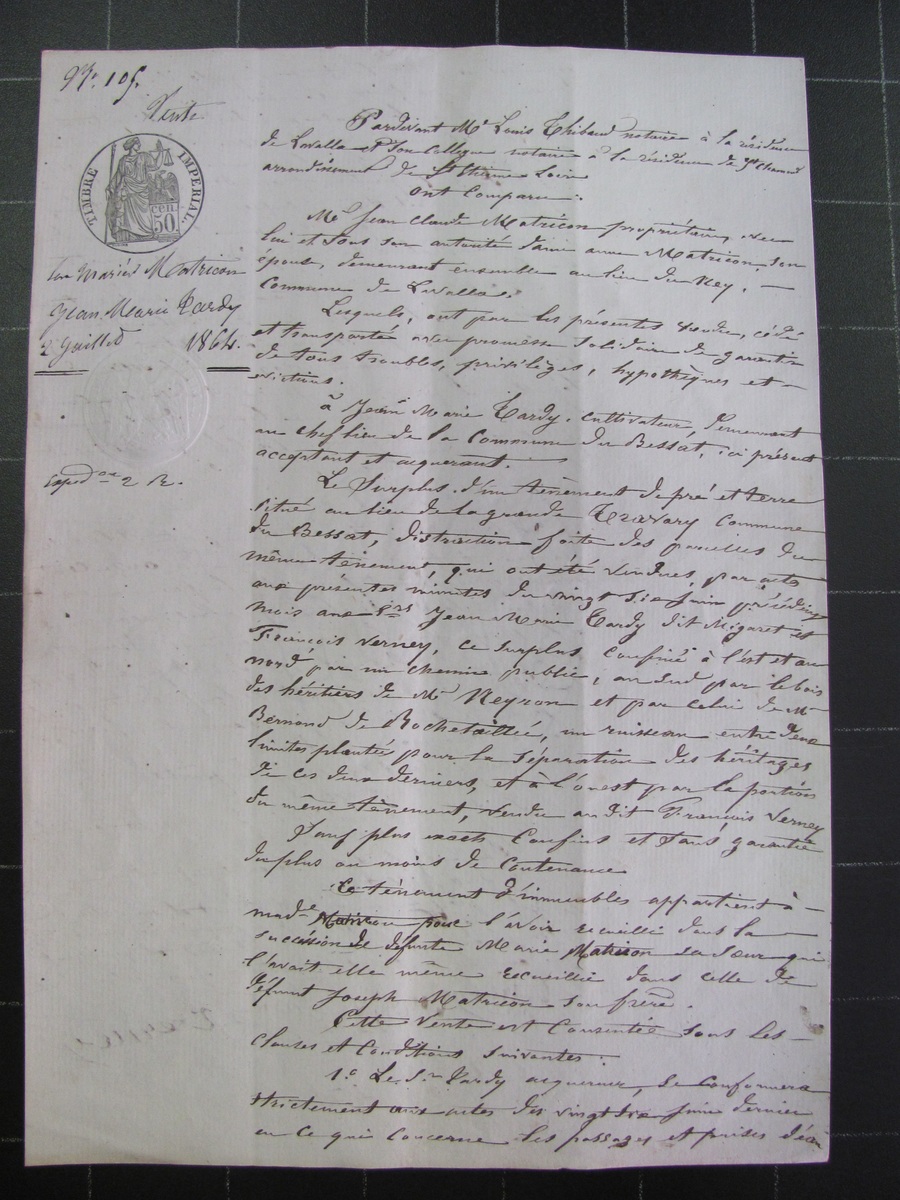 No. 105.
Vente
TIMBRE IMPERIAL
50 cen.
Les mariés Matricon
Jean Marie Tardy
2 Juillet 1864.
Expedon 2 R.
Pardevant Me Louis Thibaud notaire à la résidence
de Lavalla et son collègue notaire à la résidence de St Chamond
arrondissement de St Etienne Loire
Ont Comparu:
Mr Jean Claude Matricon propriétaire, avec
lui et sous son autorité dame anne Matricon, son
épouse, demeurant ensemble au lieu du Ney, —
Commune de Lavalla.
Lesquels, ont par les présentes vendu, cédé
et transporté avec promesse solidaire de garantir
de tous troubles, privilèges, hypothèques et —
évictions.
à Jean Marie Tardy, cultivateur, demeurant
au chef lieu de la Commune du Bessat, ici présent
acceptant et acquerant.
Le Surplus d'un tènement de pré et terre
situé au lieu de la grande Travary Commune
du Bessat, distraction faite des parcelles du
même tènement, qui ont été vendues, par acts
aux présentes minutes du vingt six juin précédent
mois aux Srs Jean Marie Tardy dit Migaret et
François Verney, ce surplus confiné à l'est et au
nord par un chemin public, au sud par le bois
des héritiers de Mr Neyron et par celui de Mr
Bernond de Rochetaillée, un ruisseau entre deux
limites plantée pour la séparation des héritages
de ces deux derniers, et à l'ouest par la portion
du même tènement, vendu au dit François Verney
Sauf plus exacts Confins et sans garantie
du plus ou moins de Contenance
Ce tènement d'immeubles appartient à —
made Matricon pour l'avoir recueilli dans la
succession de défunte Marie Matricon sa sœur qui
l'avait elle même recueillie dans celle de
défunt Joseph Matricon son frère.
Cette Vente est Consentie sous les —
Clauses et Conditions Suivantes:
1o Le Sr Tardy acquereur, se conformera
strictement aux actes des vingt six juin dernier
en ce qui concerne les passages et prises d'eau